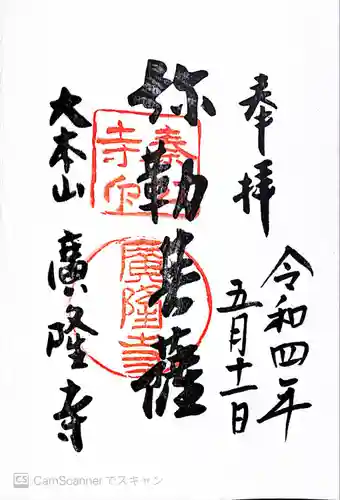 奉拝
令和四年
五月十一日
弥勒菩薩
大本山 廣隆寺
廣隆寺
CS CamScannerでスキャン